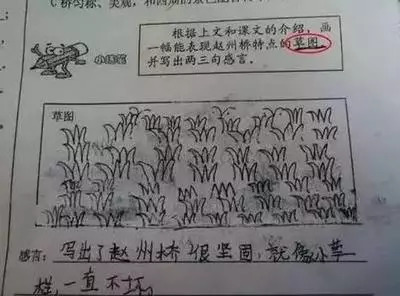 C桥匀称、美观，和四周的景色配合
小练笔
根据上文和课文的介绍，画
一幅能表现赵州桥特点的草图，
并写出两三句感言。
草图
感言：写出了赵州桥很坚固，就像小草
样，一直不坏。